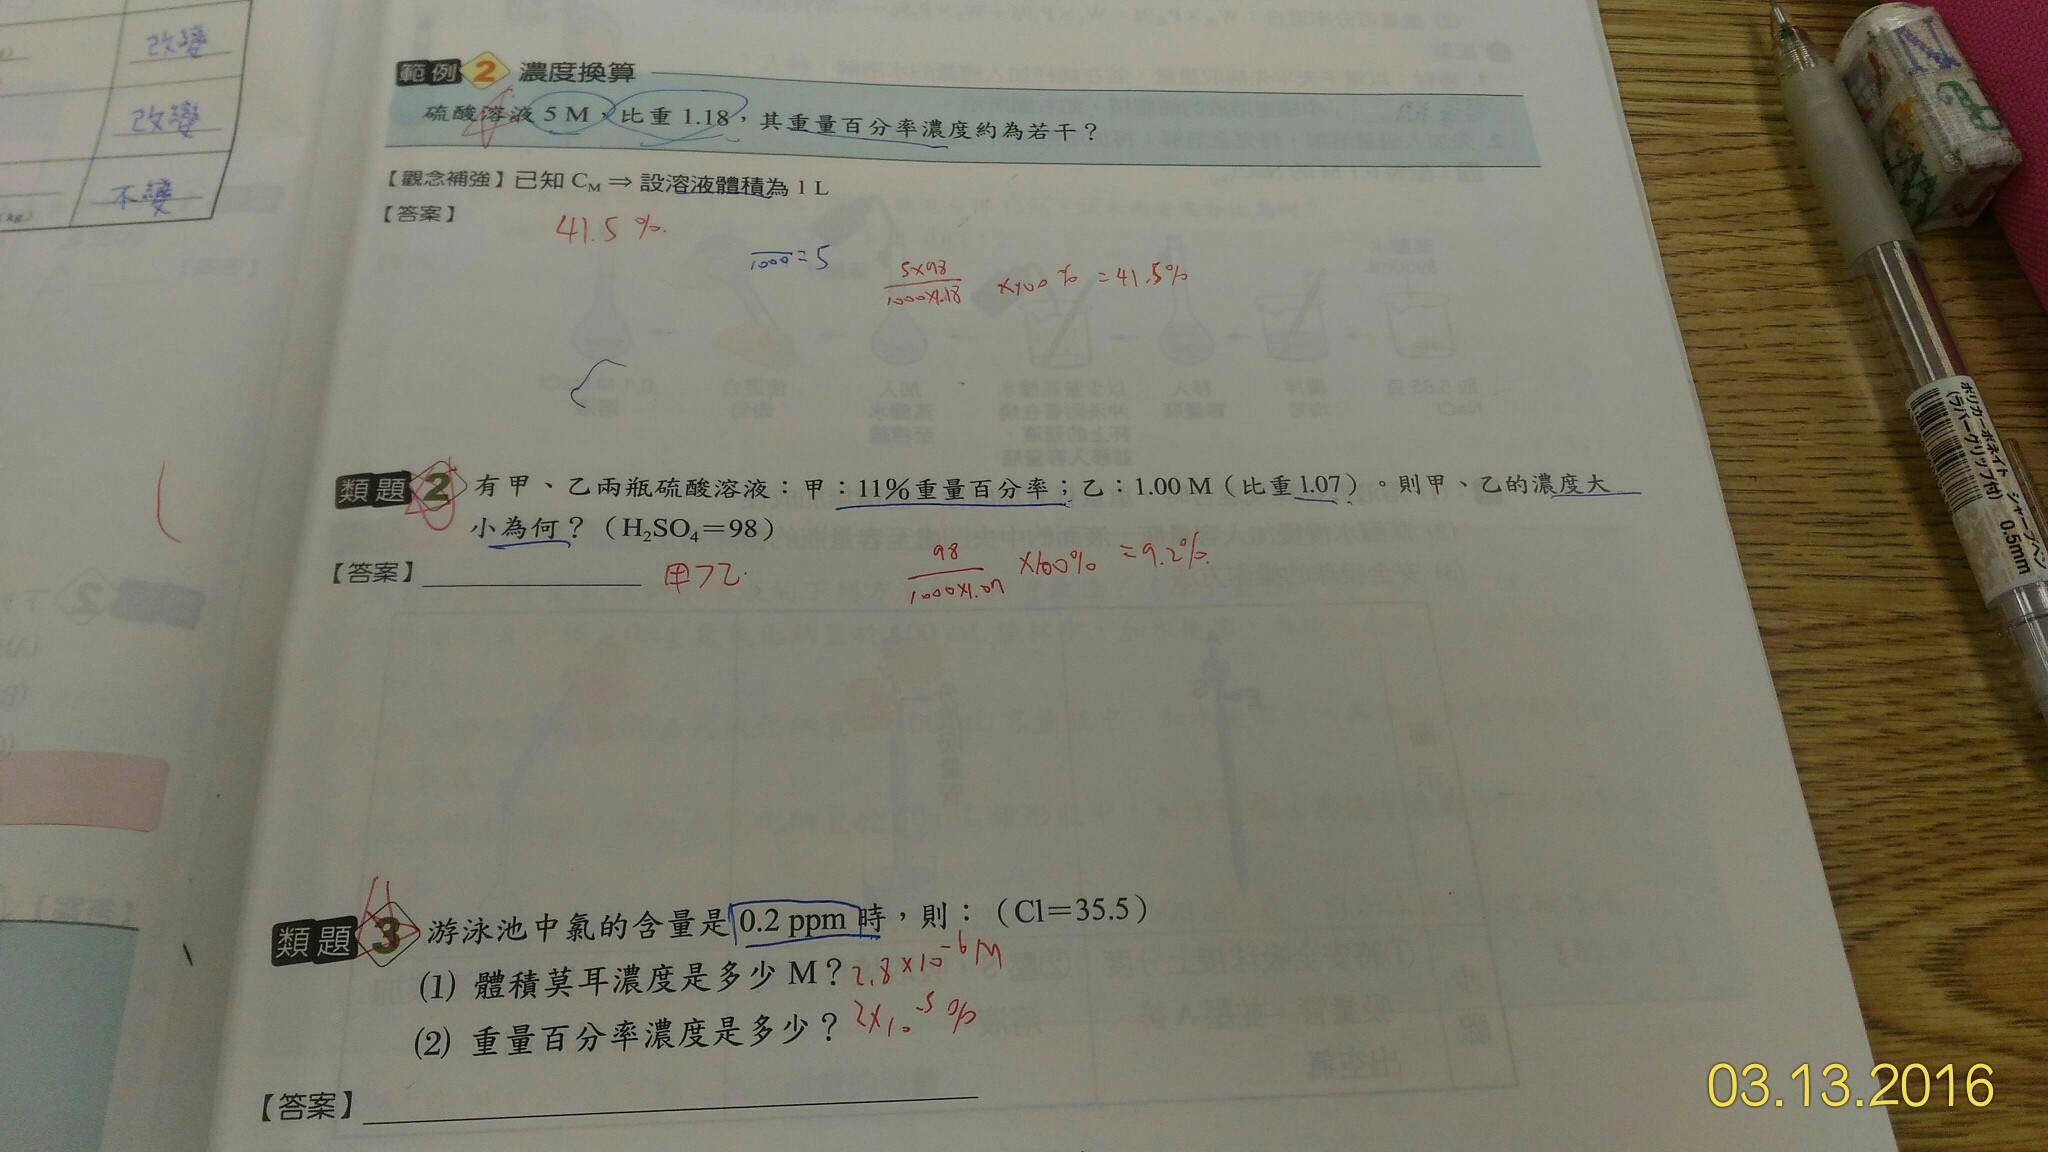 改變
改變
不變
範例 2 濃度換算
硫酸溶液 5 M,比重 1.18,其重量百分率濃度約為若干?
【觀念補強】已知 CM ⇒ 設溶液體積為 1 L
【答案】
41.5 %.
1000 = 5
5×98
1000×1.18
×100% = 41.5%
類題 2 有甲、乙兩瓶硫酸溶液:甲:11%重量百分率;乙:1.00 M(比重1.07)。則甲、乙的濃度大
小為何?(H₂SO₄=98)
【答案】
甲>乙.
98
1000×1.07
×100% = 9.2%.
類題 3 游泳池中氯的含量是 0.2 ppm 時,則:(Cl=35.5)
(1) 體積莫耳濃度是多少 M? 2.8×10⁻⁶ M
(2) 重量百分率濃度是多少? 2×10⁻⁵ %
【答案】
ポリカーボネイト シャープペン
(ラバーグリップ付) 0.5mm
03.13.2016